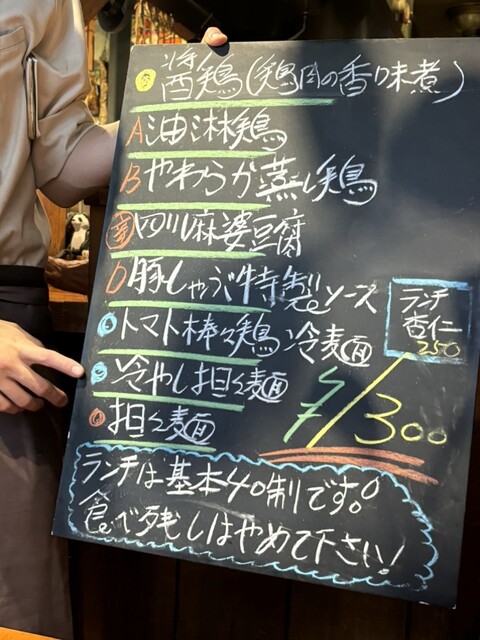 醤鶏(鶏肉の香味煮)
A油淋鶏
Bやわらか蒸し鶏
四川麻婆豆腐
D豚しゃぶ特製ソース
トマト棒々鶏冷麺
冷やし担々麺
担々麺
ランチ
杏仁
250
¥1300
ランチは基本40制です。
食べ残しはやめて下さい!